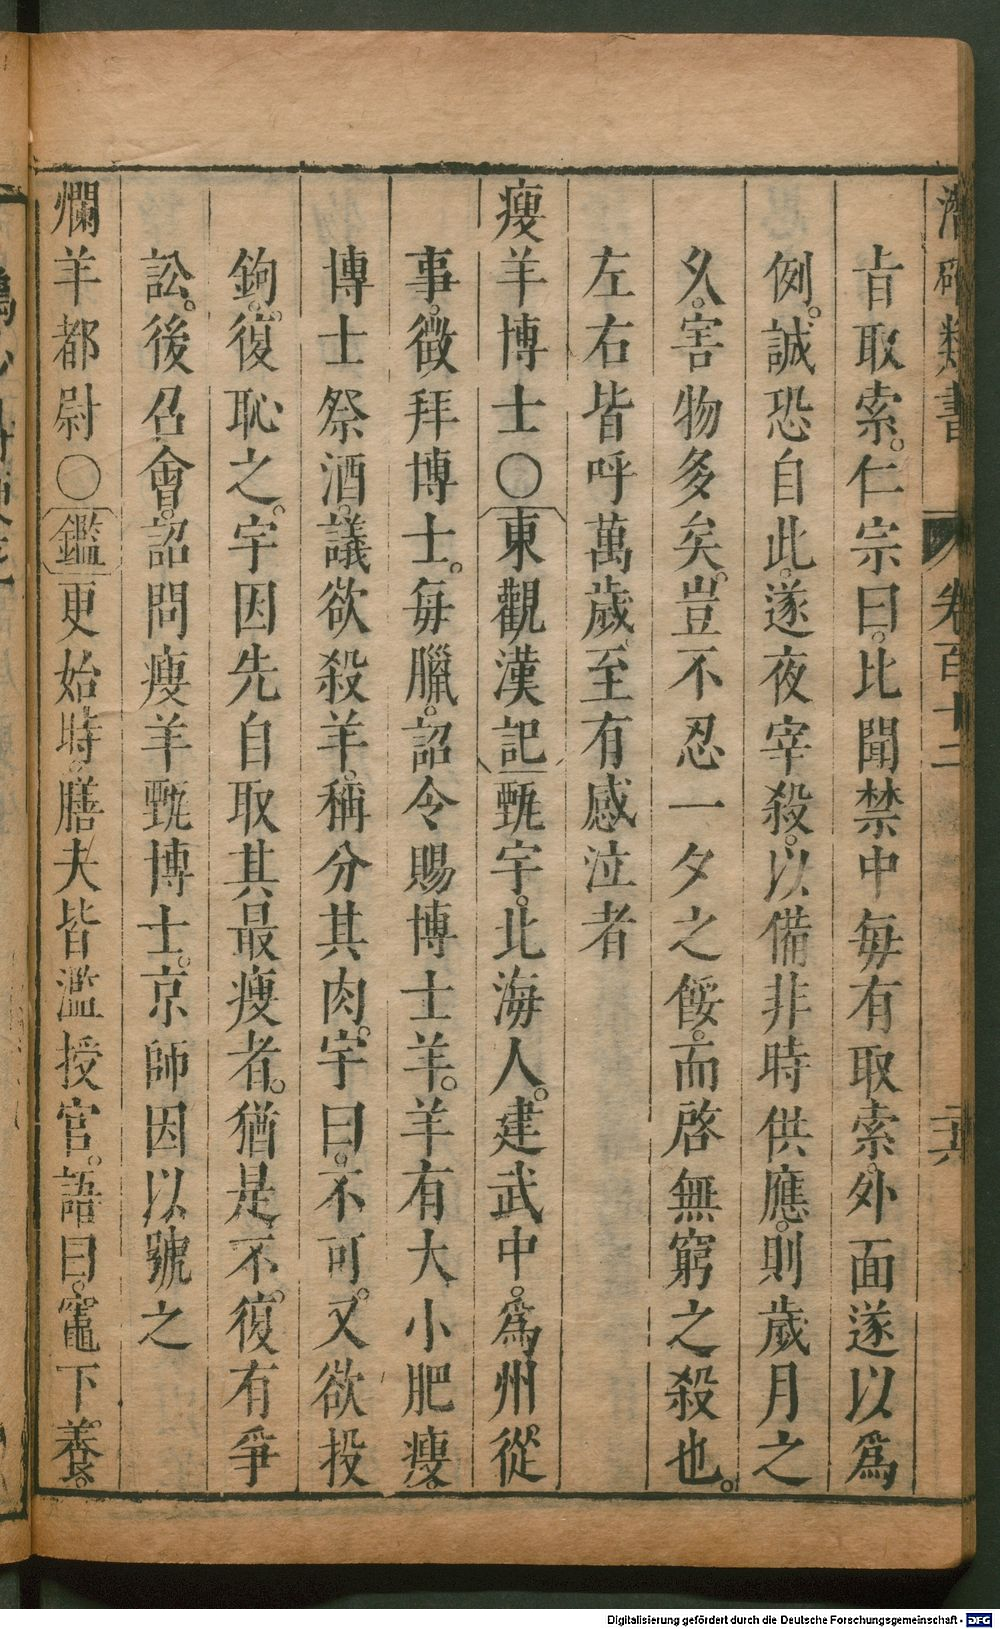 潛確類書　卷百十二　二十六
旨取索。仁宗曰。比聞禁中毎有取索。外面遂以爲
例。誠恐自此。遂夜宰殺。以備非時供應。則歲月之
久。害物多矣。豈不忍一夕之餒。而啓無窮之殺也。
左右皆呼萬歲。至有感泣者
瘦羊博士〇東觀漢記甄宇。北海人。建武中。爲州從
事。徵拜博士。毎臘。詔令賜博士羊。羊有大小肥瘦。
博士祭酒。議欲殺羊。稱分其肉。宇曰。不可。又欲投
鉤。復恥之。宇因先自取其最瘦者。猶是不。復有爭
訟。後召會。詔問瘦羊甄博士。京師因以號之
爛羊都尉〇鑑更始時。膳夫皆濫授官。語曰。竈下養。
Digitalisierung gefördert durch die Deutsche Forschungsgemeinschaft - DFG